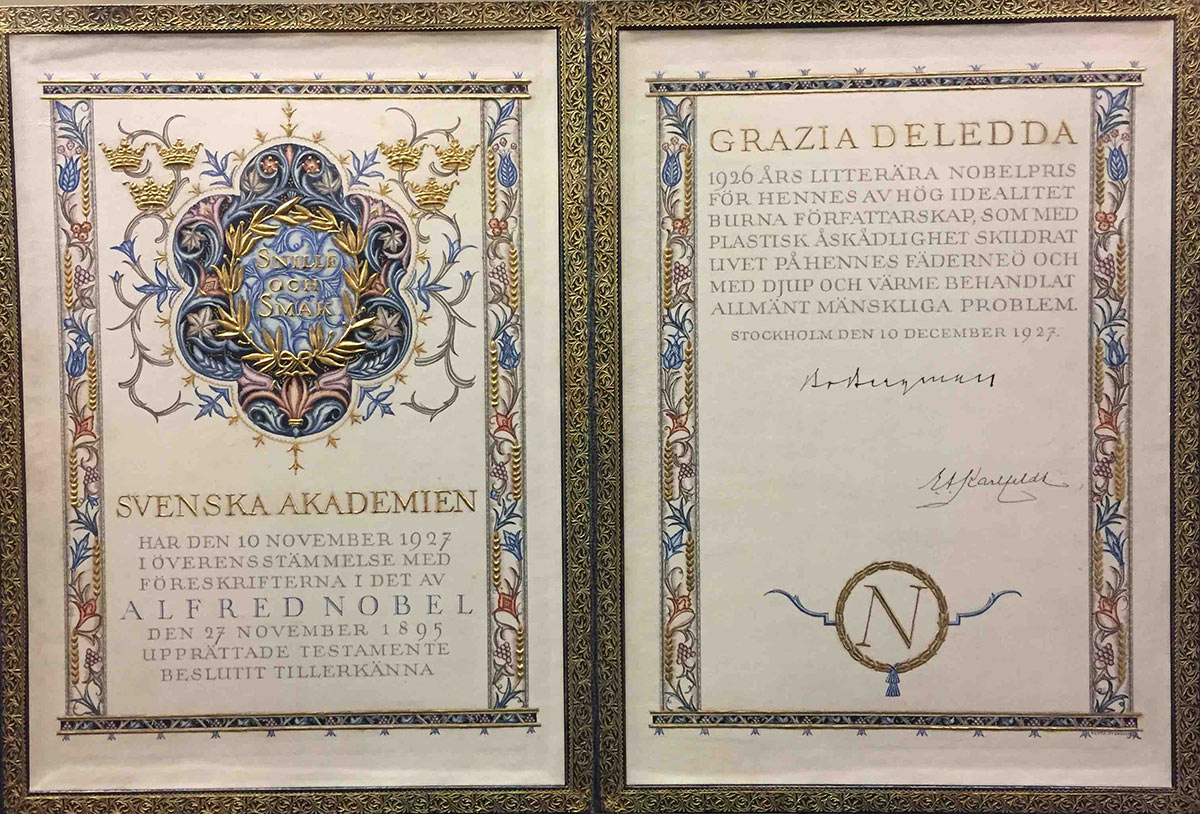 SNILLE
OCH
SMAK
SVENSKA AKADEMIEN
HAR DEN 10 NOVEMBER 1927
I ÖVERENSSTÄMMELSE MED
FÖRESKRIFTERNA I DET AV
ALFRED NOBEL
DEN 27 NOVEMBER 1895
UPPRÄTTADE TESTAMENTE
BESLUTIT TILLERKÄNNA
GRAZIA DELEDDA
1926 ÅRS LITTERÄRA NOBELPRIS
FÖR HENNES AV HÖG IDEALITET
BURNA FÖRFATTARSKAP, SOM MED
PLASTISK ÅSKÅDLIGHET SKILDRAT
LIVET PÅ HENNES FÄDERNEÖ OCH
MED DJUP OCH VÄRME BEHANDLAT
ALLMÄNT MÄNSKLIGA PROBLEM.
STOCKHOLM DEN 10 DECEMBER 1927.
Bo Bergman
E. A. Karlfeldt
N